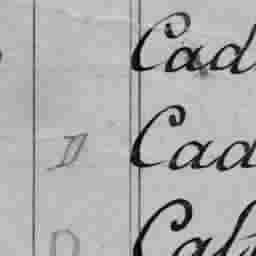 Cad
D Cad
D Cal